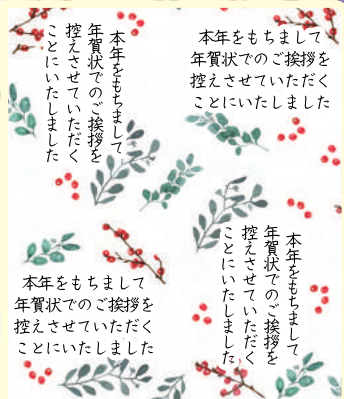 本年をもちまして
年賀状でのご挨拶を
控えさせていただく
ことにいたしました
本年をもちまして
年賀状でのご挨拶を
控えさせていただく
ことにいたしました
本年をもちまして
年賀状でのご挨拶を
控えさせていただく
ことにいたしました
本年をもちまして
年賀状でのご挨拶を
控えさせていただく
ことにいたしました